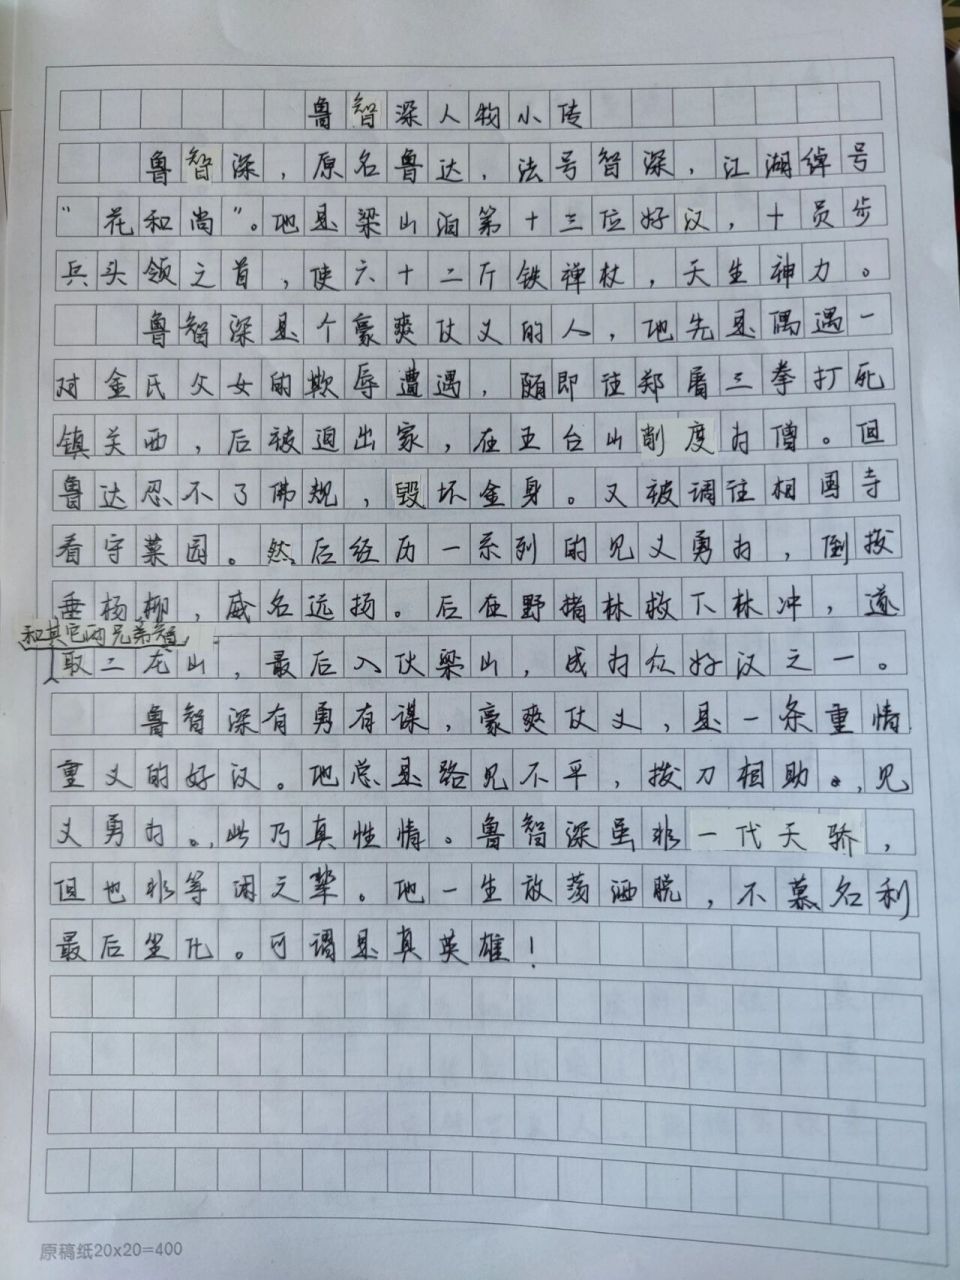 鲁智深人物小传
鲁智深，原名鲁达，法号智深，江湖绰号
“花和尚”。他是梁山泊第十三位好汉，十员步
兵头领之首，使六十二斤铁禅杖，天生神力。
鲁智深是个豪爽仗义的人，他先是偶遇一
对金氏父女的欺辱遭遇，随即往郑屠三拳打死
镇关西，后被迫出家，在五台山削度为僧。但
鲁达忍不了佛规，毁坏金身。又被调往相国寺
看守菜园。然后经历一系列的见义勇为，倒拔
垂杨柳，威名远扬。后在野猪林救下林冲，遂
和其它两兄弟智
取二龙山，最后入伙梁山，成为众好汉之一。
鲁智深有勇有谋，豪爽仗义，是一条重情
重义的好汉。他总是路见不平，拔刀相助。，见
义勇为。，此乃真性情。鲁智深虽非一代天骄，
但也非等闲之辈。他一生放荡洒脱，不慕名利
最后坐化。可谓是真英雄！
原稿纸20x20=400